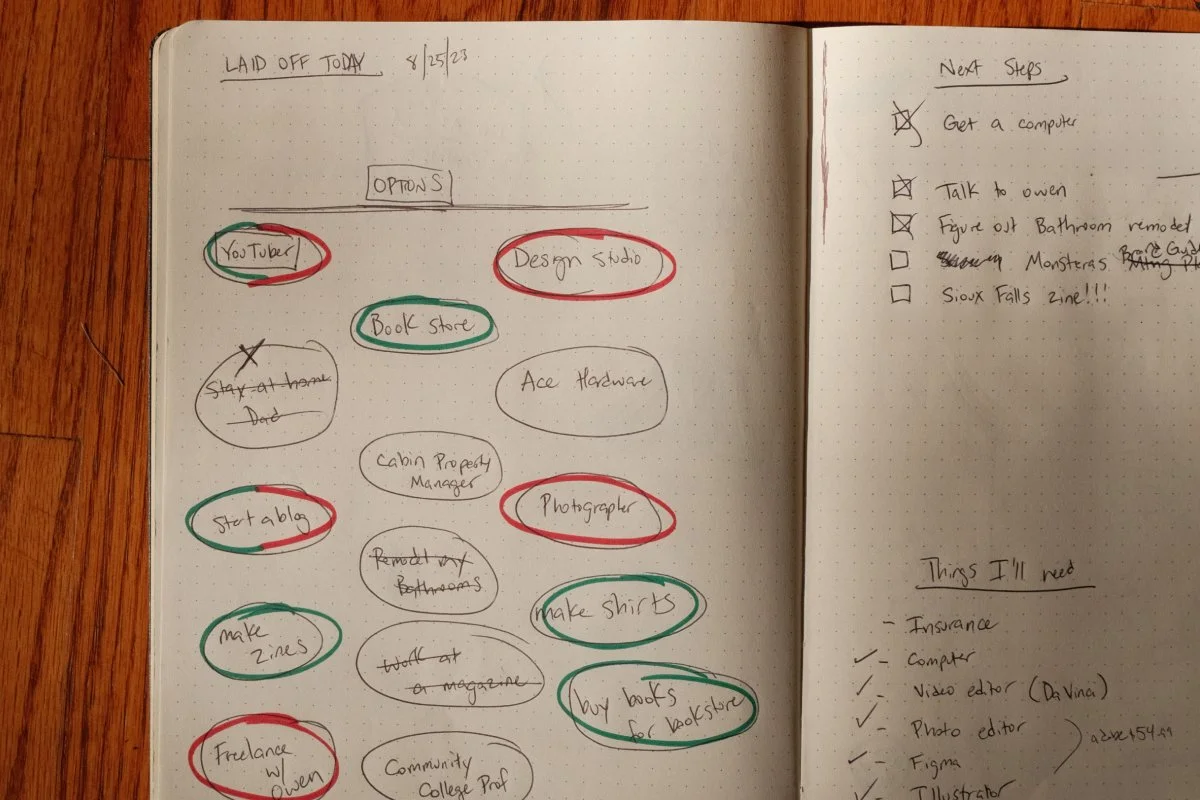 LAID OFF TODAY 8/25/23
OPTIONS
YouTuber
Design Studio
Book Store
Stay at home
Dad
Ace Hardware
Cabin Property
Manager
Start a blog
Photographer
Remodel my
Bathrooms
make shirts
make
zines
Work at
a magazine
buy books
for bookstore
Freelance
w/
Owen
Community
College Prof
Next Steps
Get a computer
Talk to owen
Figure out Bathroom remodel
Monsteras Brand
Sioux Falls zine!!!
Things I'll need
- Insurance
- Computer
- Video editor (DaVinci)
- Photo editor
- Figma
- Illustrator